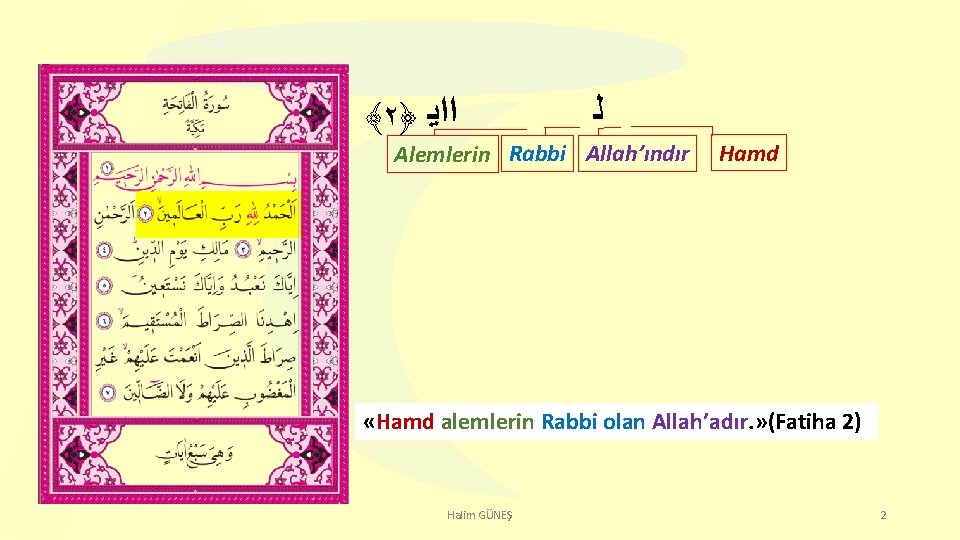 سُورَةُ الْفَاتِحَةِ
مَكِّيَّةٌ
بِسْــــمِ اللهِ الرَّحْمٰنِ الرَّحِيمِ ﴿١﴾
اَلْحَمْدُ لِلّٰهِ رَبِّ الْعَالَمِينَۙ ﴿٢﴾ اَلرَّحْمٰنِ
الرَّحِيمِۙ ﴿٣﴾ مَالِكِ يَوْمِ الدِّينِۜ ﴿٤﴾
اِيَّاكَ نَعْبُدُ وَاِيَّاكَ نَسْتَعِينُۜ ﴿٥﴾
اِهْدِنَا الصِّرَاطَ الْمُسْتَقِيمَۙ ﴿٦﴾
صِرَاطَ الَّذِينَ اَنْعَمْتَ عَلَيْهِمْۙ غَيْرِ
الْمَغْضُوبِ عَلَيْهِمْ وَلَا الضَّالِّينَ ﴿٧﴾
وَهِىَ سَبْعُ اٰيَاتٍ
﴿٢﴾
Alemlerin Rabbi Allah’ındır Hamd
«Hamd alemlerin Rabbi olan Allah’adır.»(Fatiha 2)
Halim GÜNEŞ
2